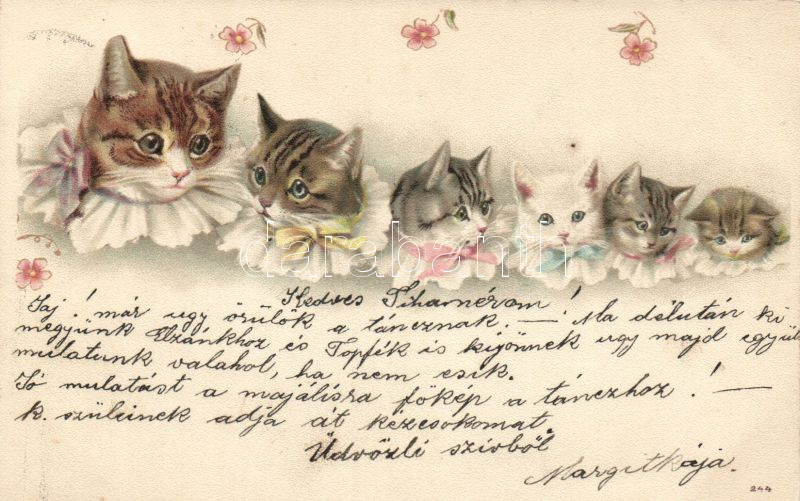 Kedves Tihamérom!
Jaj! már ugy örülök a táncznak. — Ma délután ki
megyünk Elzánkhoz és Topfék is kijönnek ugy majd együtt
mulatunk valahol, ha nem esik.
Jó mulatást a majálisra főkép a tánczhoz! —
k. szüleinek adja át kézcsokomat.
Üdvözli szívből
Margitkája.
244
darabanth